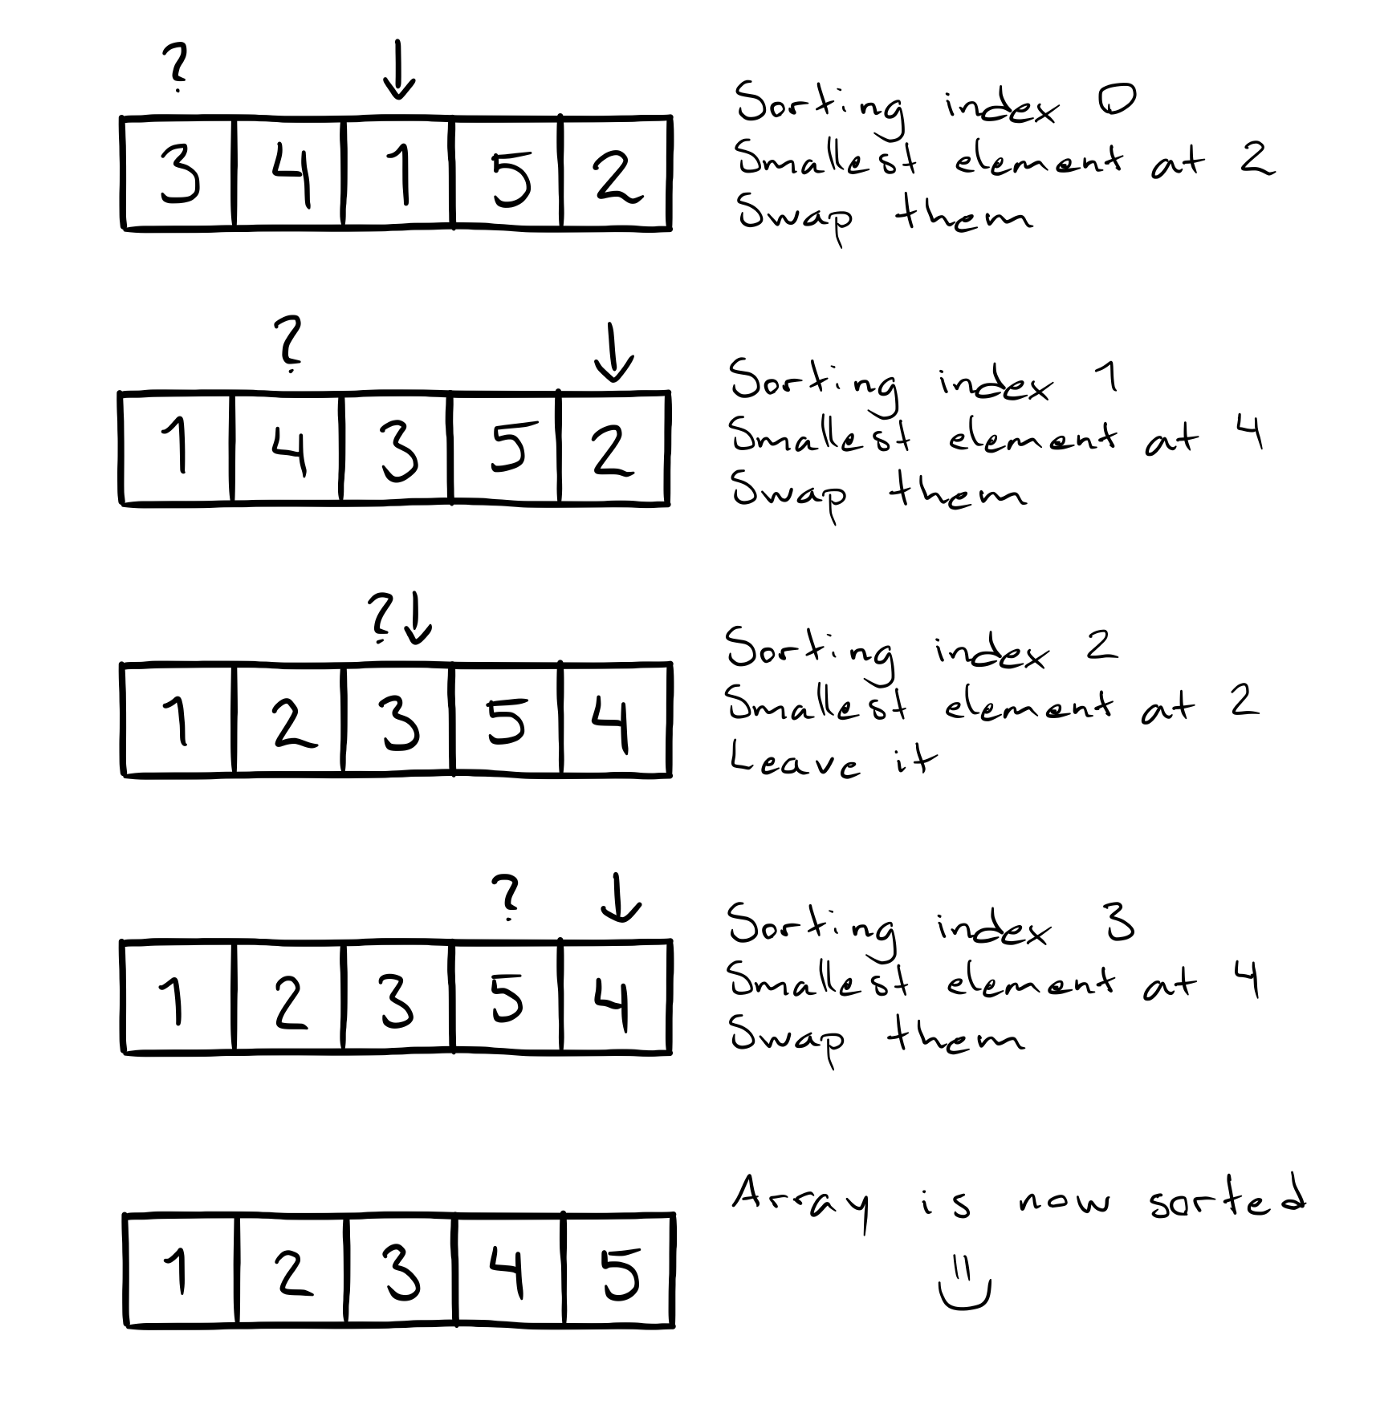 ?
3 4 1 5 2
Sorting index 0
Smallest element at 2
Swap them
?
1 4 3 5 2
Sorting index 1
Smallest element at 4
Swap them
?
1 2 3 5 4
Sorting index 2
Smallest element at 2
Leave it
?
1 2 3 5 4
Sorting index 3
Smallest element at 4
Swap them
1 2 3 4 5
Array is now sorted